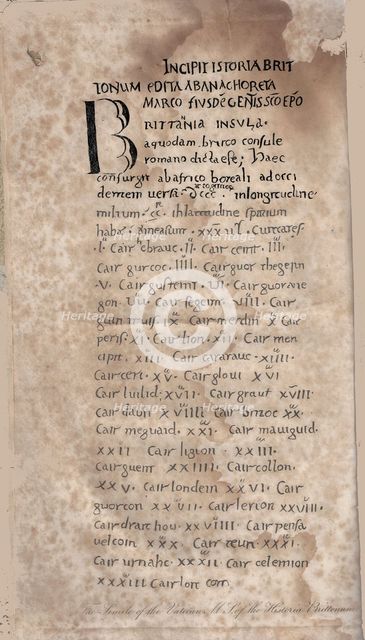 INCIPIT ISTORIA BRIT
TONUM EDITA AB ANACHORETA
MARCO EIUSDĒ GENTIS SCO EPO
BRITTANIA INSULA.
a quodam brito consule
romano dicta est; haec
consurgit ab africo boreali ad occi
dentem versa. dccc. in longitudine
milium. cc. in latitudine spatium
habet
.I. Cair ebrauc. II. Cair ceint. III.
Cair gurcoc. IIII. Cair guor thegern
.V. Cair gusteint. VI. Cair guorane
gon. VII. Cair segeint. VIII. Cair
guin truis. X. Cair merdin. X. Cair
peris. XI. Cair lion. XII. Cair men
cipit. XIII. Cair caratauc. XIIII.
Cair ceri. XV. Cair gloui. XVI
Cair luilid. XVII. Cair graut. XVIII.
Cair daun. XVIIII. Cair britoc. XX.
Cair meguaid. XXI. Cair mauiguid.
XXII Cair ligion. XXIII.
Cair guent. XXIIII. Cair collon.
XXV. Cair londein. XXVI. Cair
guorcon. XXVII. Cair lerion. XXVIII.
Cair drait hou. XXVIIII. Cair pensa
uelcoin. XXX. Cair teun. XXXI.
Cair urnahc. XXXII. Cair celemion
XXXIII Cair loit coit
Fac-Simile of the Vatican M.S. of the Historia Brittonum
Heritage
Heritage
Heritage
Heritage